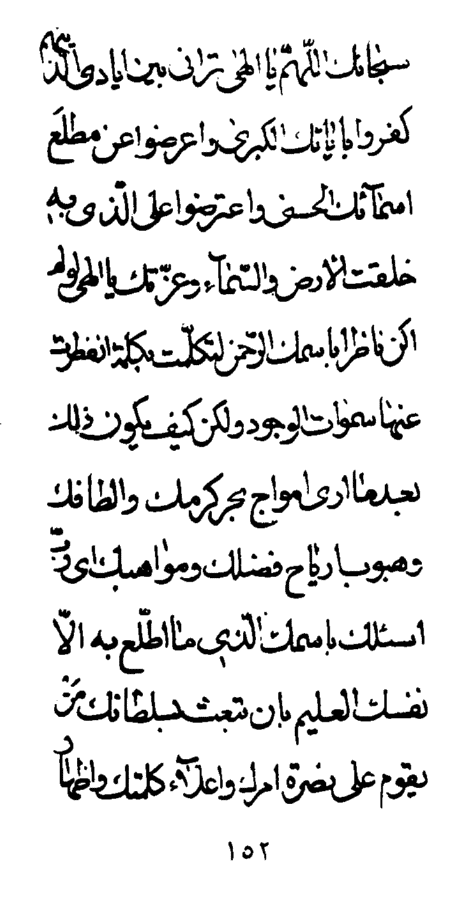 سبحانك اللّهمّ يا الهى ترانى بين ايادى الّذينهم
كفروا باياتك الكبرى واعرضوا عن مطلع
اسمآئك الحسنى واعترضوا على الّذى به
خلقت الارض والسّمآء وعزّتك يا الهى لو لم
اكن ناظرا باسمك الرّحمن لتكلّمت بكلمة انفطرت
عنها سموات الوجود ولكن كيف يكون ذلك
بعد ما ارى امواج بحر كرمك والطافك
وهبوب ارياح فضلك ومواهبك اى ربّ
اسئلك باسمك الّذى ما اطّلع به الّا
نفسك العليم بان تبعث بسلطانك مَنْ
يقوم على نصرة امرك واعلآء كلمتك واظهار
١٥٢